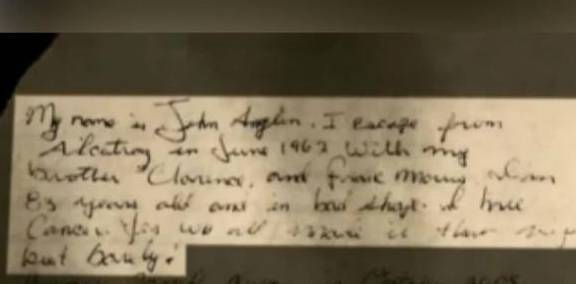 My name is John Anglin. I escape from
Alcatraz in June 1962 with my
brother Clarence, and Frank Morris I'm
83 years old and in bad shape. I have
Cancer. Yes we all made it that night
but barely!